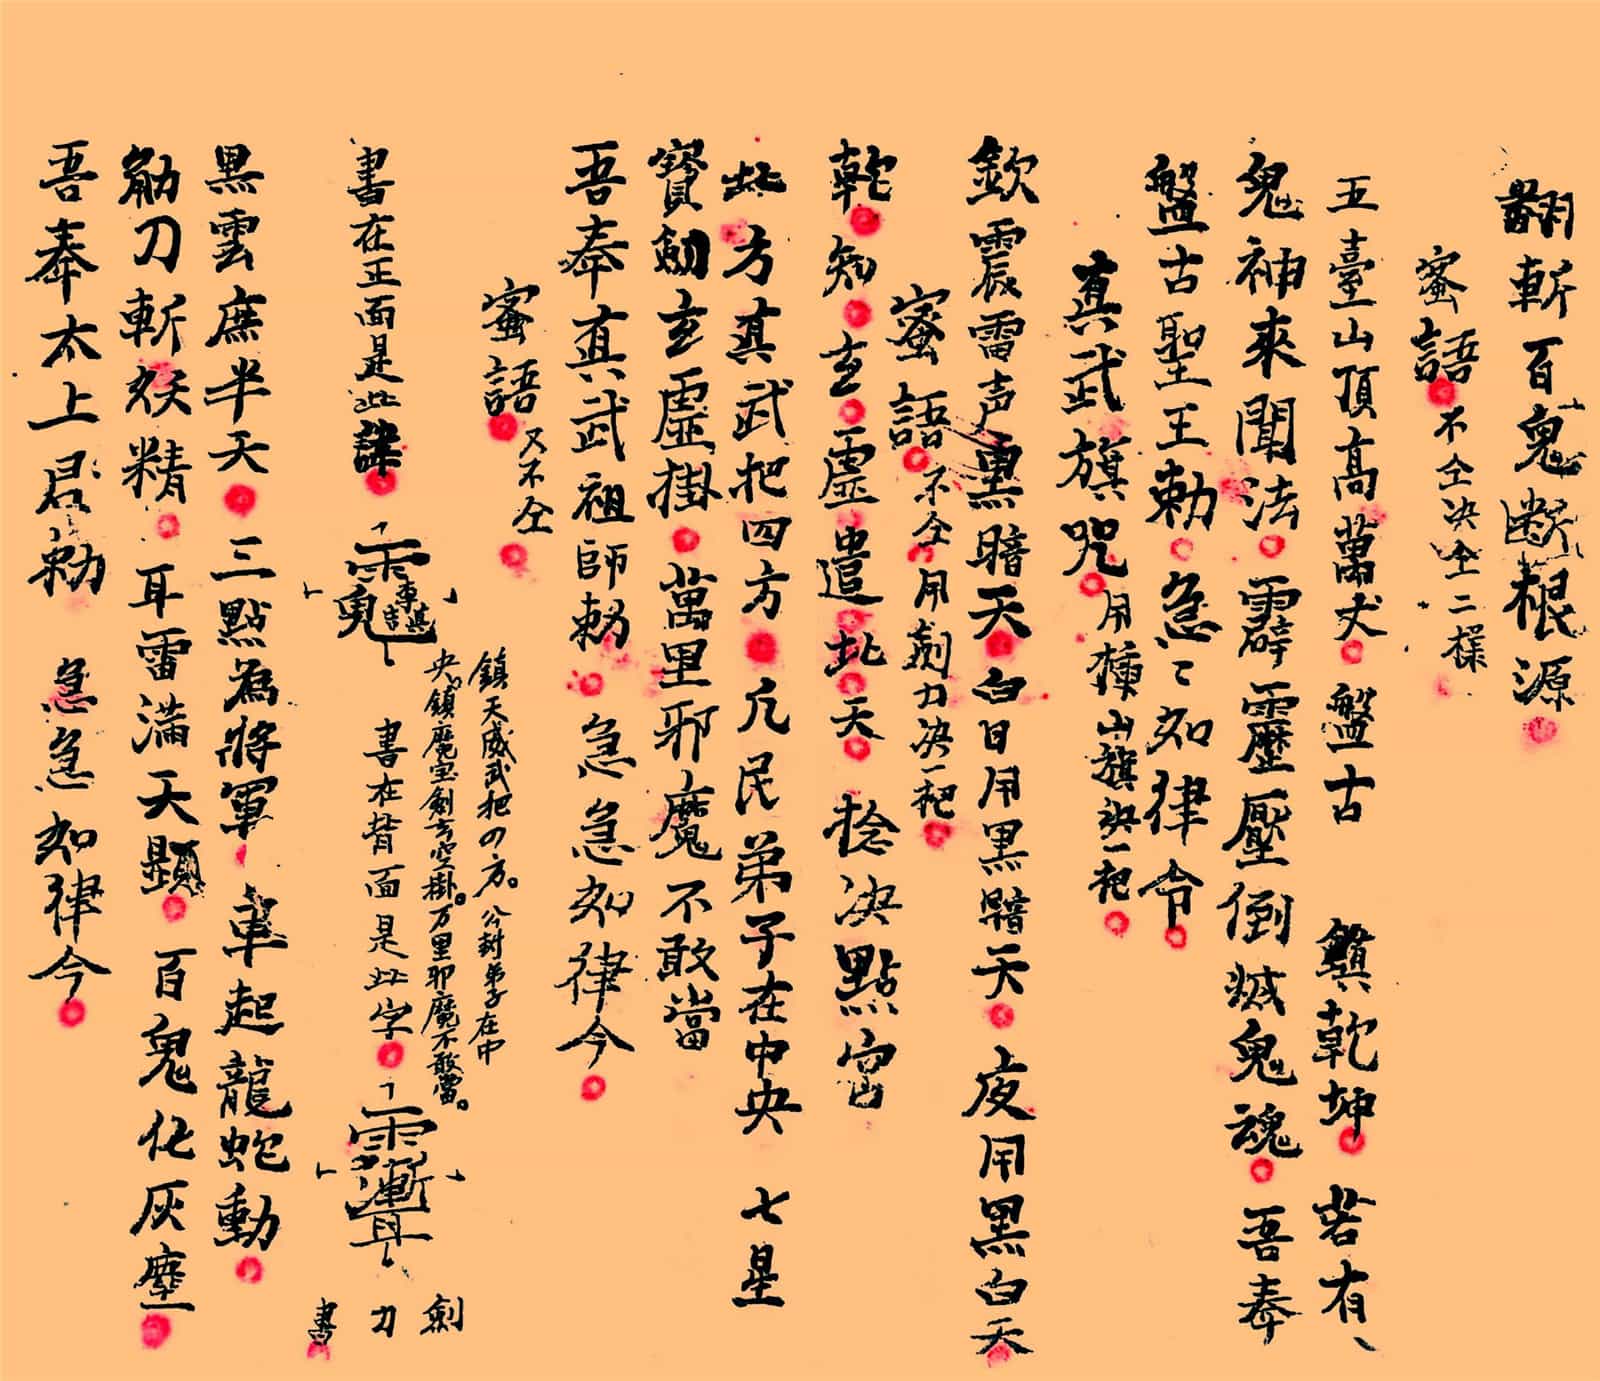 斬百鬼断根源
蜜語 不仝决仝二樣
五臺山頂高萬丈 盤古 鎮乾坤 若有
鬼神來聞法 霹靂壓倒滅鬼魂 吾奉
盤古聖王勅 急〻如律令
真武旗咒 用山旗决一把
欽震雷声黑暗天 白日用黑暗天 夜用黑白天
蜜語 不仝 用劍刀决一把
乾知玄虛遣此天 捻决點宫
此方真武把四方 凡民弟子在中央 七星
寳劍玄虛掛 萬里邪魔不敢當
吾奉真武祖師勅 急急如律令
蜜語 又不仝
鎮天威武把四方。公封弟子在中
央。鎮魔宝劍玄空掛。万里邪魔不敢當。
書在正面是此諱 書在背面是此字
劍
刀
書
黑雲庶半天 三點為將軍 車起龍蛇動
刀斬妖精 耳雷滿天顕 百鬼化灰塵
吾奉太上君勅 急急如律令